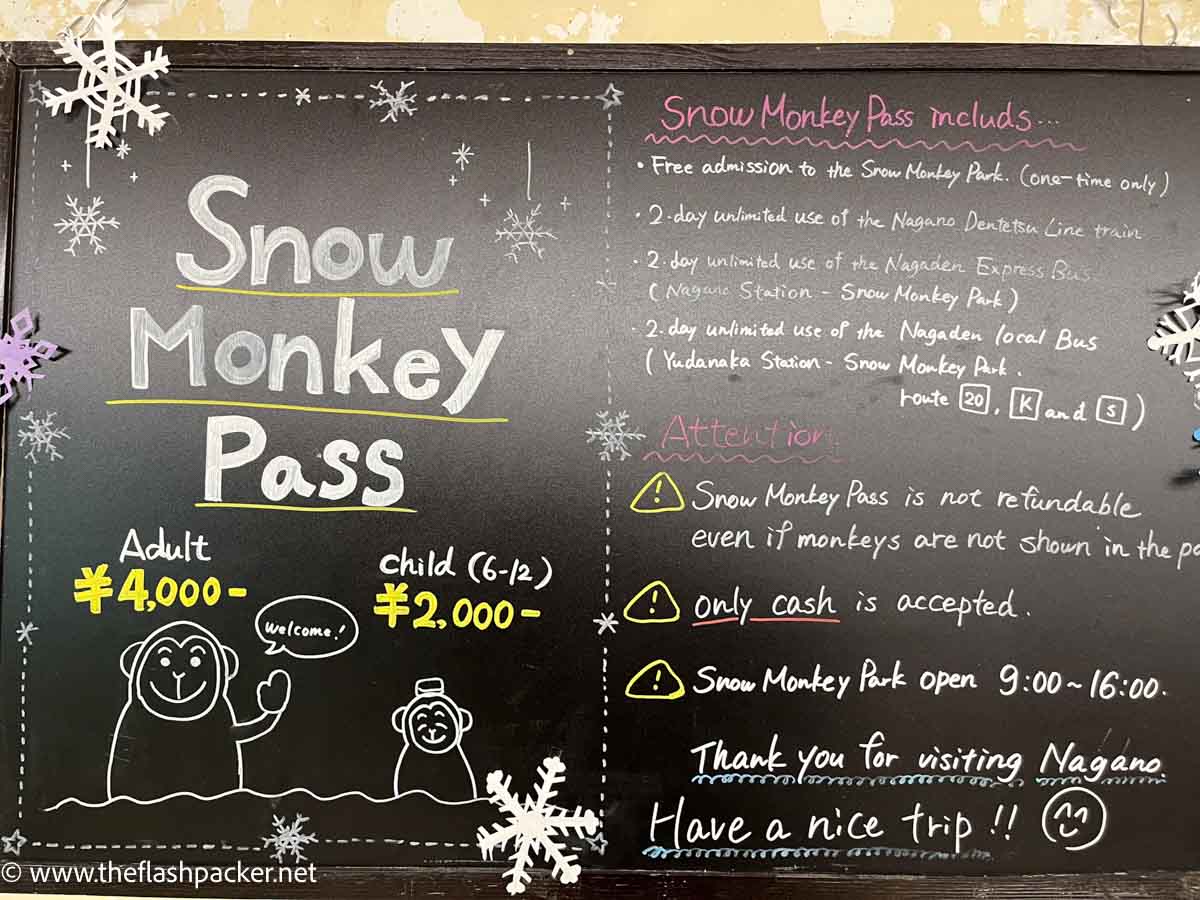 Snow
Monkey
Pass
Adult
¥4,000-
child (6-12)
¥2,000-
Welcome!
Snow Monkey Pass includs...
• Free admission to the Snow Monkey Park. (one-time only)
• 2-day unlimited use of the Nagano Dentetsu Line train
• 2-day unlimited use of the Nagaden Express Bus
(Nagano Station - Snow Monkey Park)
• 2-day unlimited use of the Nagaden local Bus
(Yudanaka Station - Snow Monkey Park.
route 20, K and S)
Attention
! Snow Monkey Pass is not refundable
even if monkeys are not shown in the
! only cash is accepted.
! Snow Monkey Park open 9:00~16:00.
Thank you for visiting Nagano
Have a nice trip!!
© www.theflashpacker.net